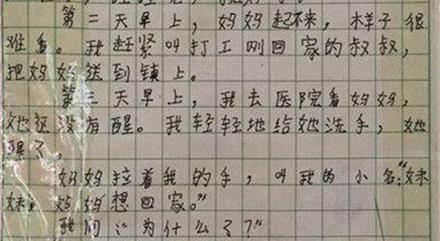 第二天早上，妈妈起不来，样子很
难看。我赶紧叫打工刚回家的叔叔，
把妈妈送到镇上。
第三天早上，我去医院看妈妈，
她还没有醒。我轻轻地给她洗手，她
醒了。
妈妈拉着我的手，叫我的小名："妹
妹，妈妈想回家。"
我问："为什么了？"